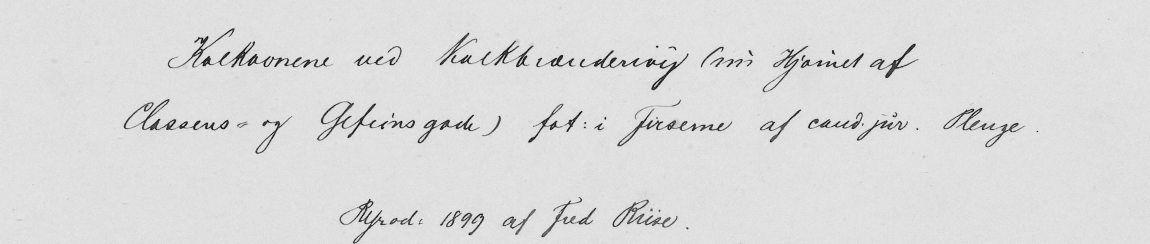 Kalkovnene ved Kalkbrænderivej (nu Hjørnet af
Classens- og Gefionsgade) fot: i Firserne af cand. jur. Plenge.
Reprod: 1899 af Fred Riise.